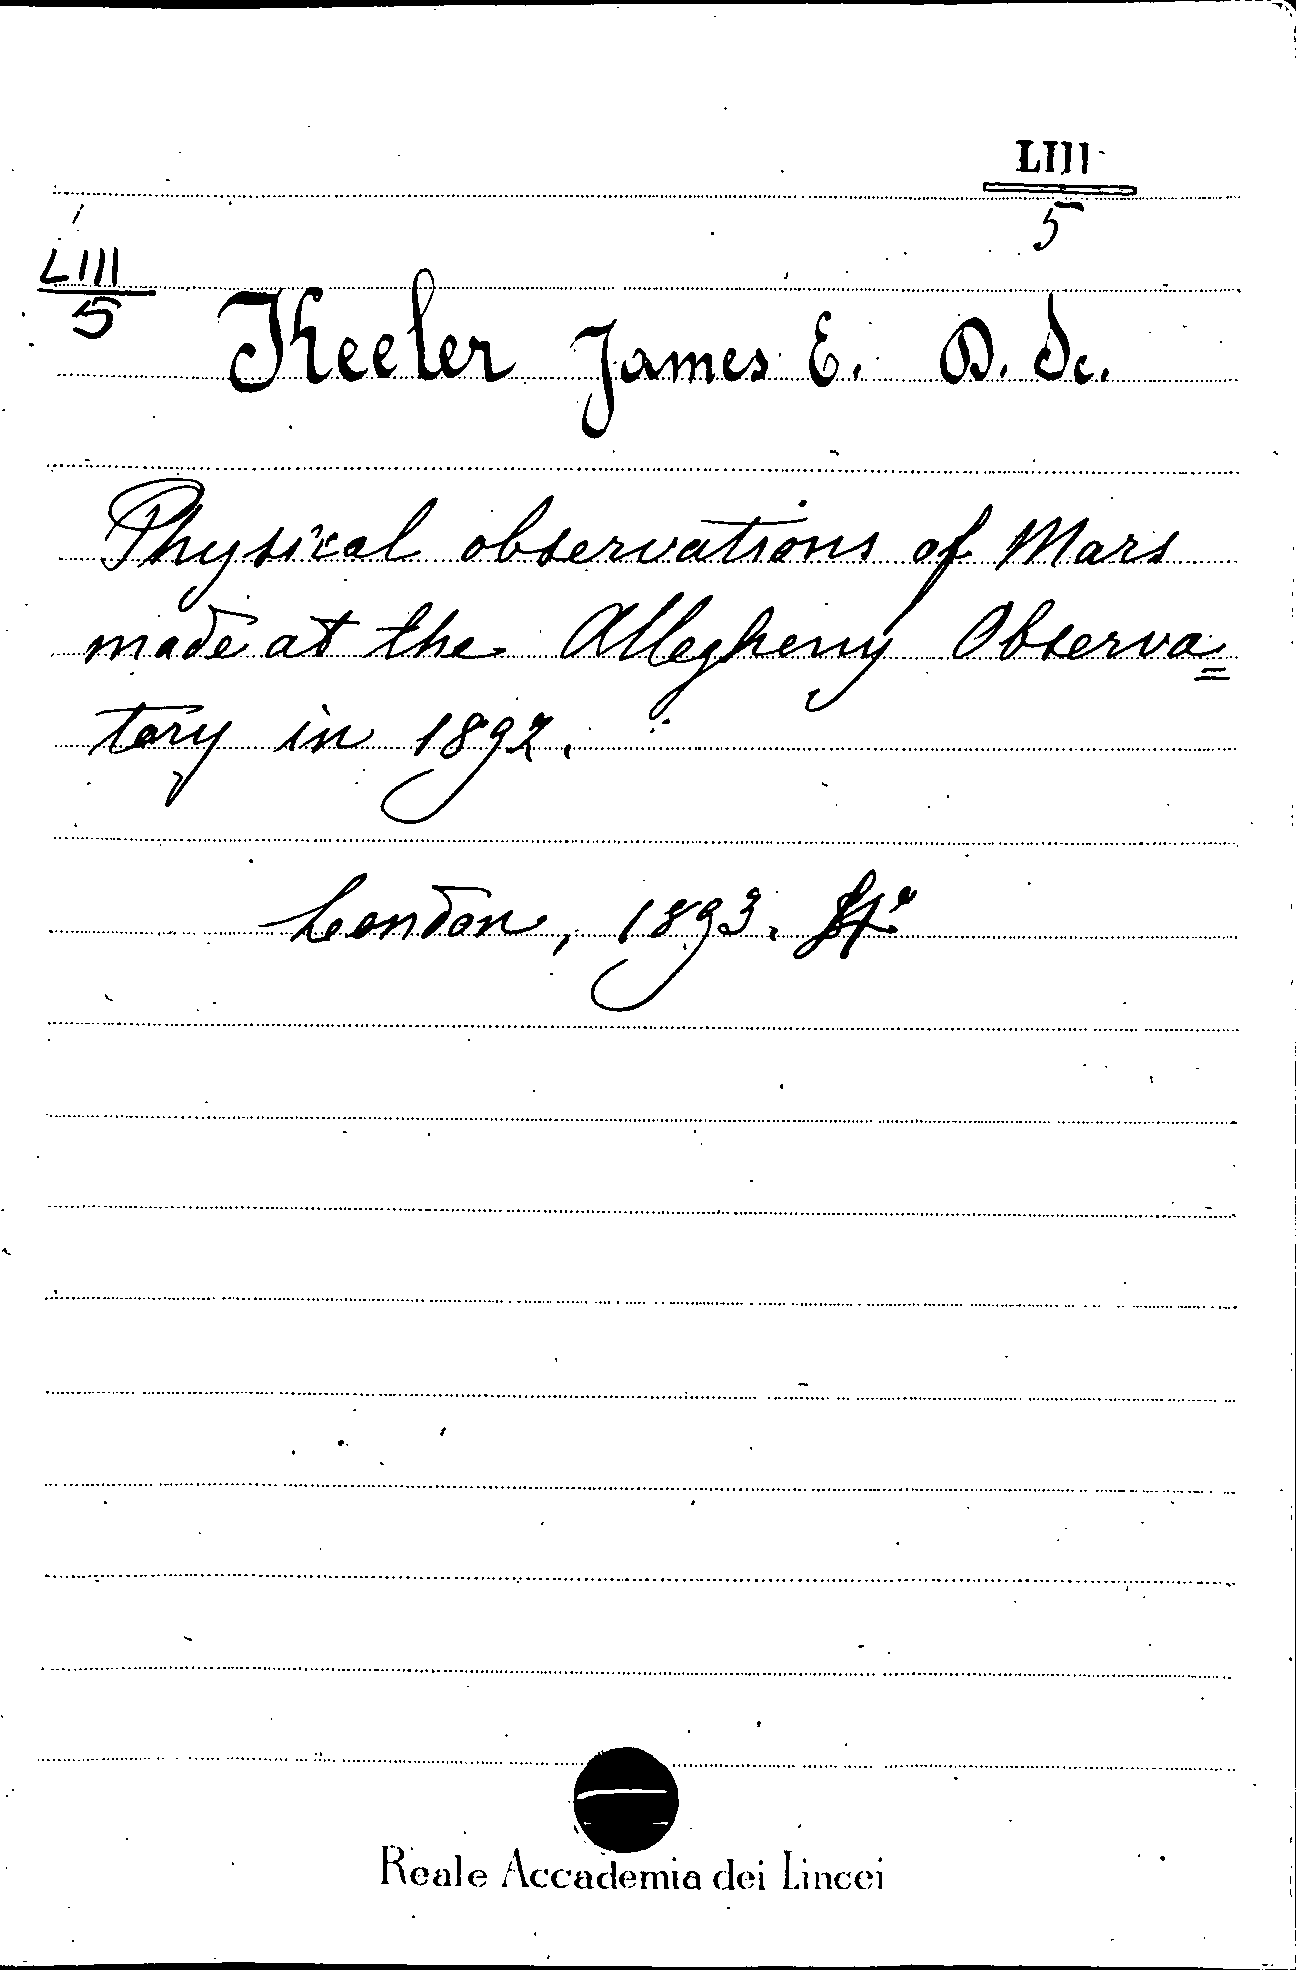 LIII
5
LIII
5
Keeler James E. D. Sc.
Physical observations of Mars
made at the Allegheny Observa=
tory in 1892.
London, 1893. 4º
Reale Accademia dei Lincei